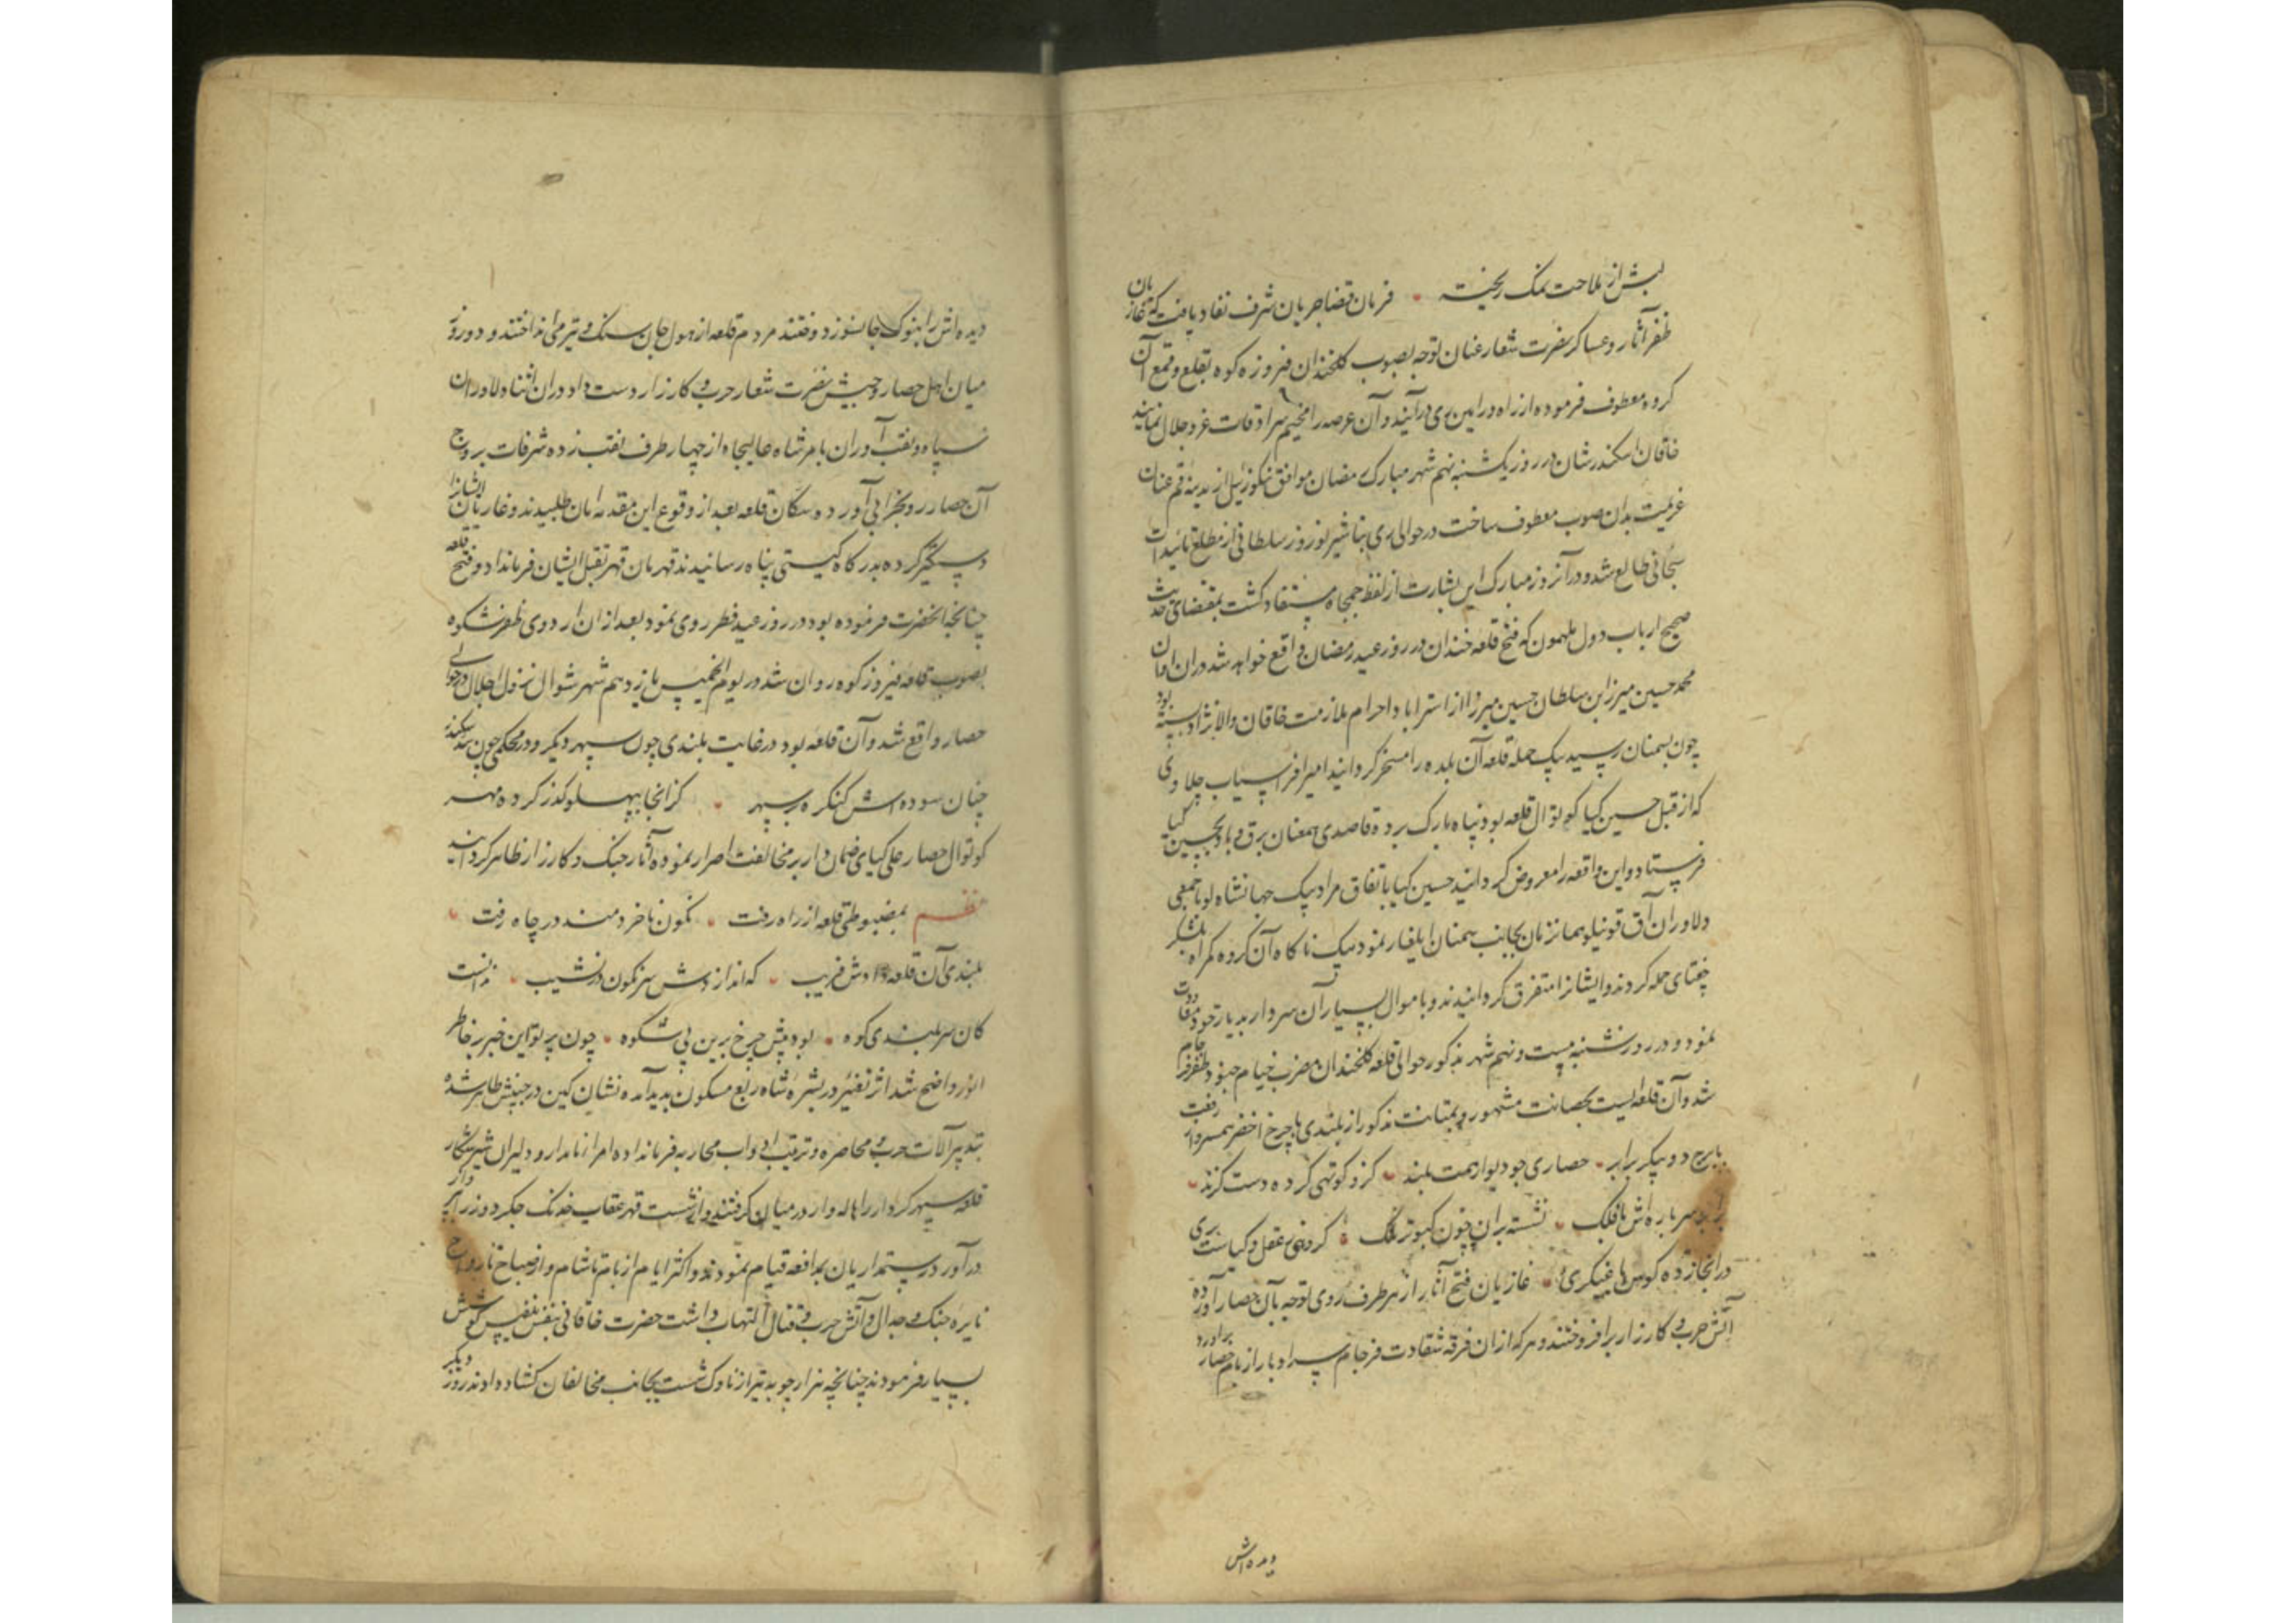 لبش از ملاحت نمک ریخته ۰ فرمان قضا جریان شرف نفاد یافت که غازیان
ظفر آثار و عساکر نصرت شعار عنان توجه بصوب کلخندان و فیروزه کوه بقلع و قمع آن
کروه معطوف فرموده از راه ورامین ری درآیند و آن عرصه را مخیم سرادقات عز و جلال نمایند
خاقان اسکندر شان در روز یکشنبه نهم شهر مبارک رمضان موافق تنکوزئیل از مدینه قم عنان
عزیمت بدان صوب معطوف ساخت در حوالی ری تباشیر نوروز سلطانی از مطلع تائیدات
سبحانی طالع شد و در آنروز مبارک این بشارت از لفظ جمجاه مستفاد کشت بمقتضای حدیث
صحیح ارباب دول ملهمون که فتح قلعه خندان در روز عید رمضان واقع خواهد شد دران اوان
محمد حسین میرزا بن سلطان حسین میرزا از استراباد احرام ملازمت خاقان والانژاد بسته بود
چون بسمنان رسید بیک حمله قلعه آن بلده را مسخر کردانید امیر افراسیاب چلاوی
که از قبل حسین کیا کوتوال قلعه بود پناه بارک برده قاصدی همعنان برق و باد بحسین کیا
فرستاد و این واقعه را معروض کردانید حسین کیا باتفاق مراد بیک جهانشاهلو با جمعی
دلاوران آق قوینلو همانزمان بجانب سمنان ایلغار نمود بیک ناکاه آن کروه کمراه بلشکر
چغتای حمله کردند و ایشانرا متفرق کردانیدند و با موال بسیار آن سردار بدیار خود معاودت
نمود و در روز شنبه بیست و نهم شهر مذکور حوالی قلعه کلخندان مضرب خیام جنود ظفر فرجام
شد و آن قلعه ایست بحصانت مشهور و بمتانت مذکور از بلندی با چرخ اخضر همسر و از رفعت
با برج دو پیکر برابر ۰ حصاری چو دیوار همت بلند ۰ کزو کوتهی کرده دست کزند ۰
سر باره اش با فلک ۰ نشسته بران چون کبوتر ملک ۰ کروهی ز عقل و کیاست بری
در انجا زده کوسها غیبکری ۰ غازیان فتح آثار از هر طرف روی توجه بآن حصار آورده
آتش حرب و کارزار برافروختند و هر که ازان فرقه شقاوت فرجام سر ادبار از بام حصار براورد
دیده اش
دیده اش را بنوک جانسوز دوختند مردم قلعه از هول جان سنک و تیر می انداختند و دو روز
میان اهل حصار و جیش نصرت شعار حرب و کارزار دست داد دران اثنا دلاوران
سپاه و نقب آوران بامر شاه عالیجاه از چهار طرف نقب زده شرفات بروج
آن حصار رو بخرابی آورد و سکان قلعه بعد از وقوع این مقدمه امان طلبیدند و غازیان ایشانرا
دستکیر کرده بدرکاه کیتی پناه رسانیدند قهرمان قهر بقتل ایشان فرمانداد و فتح قلعه
چنانچه انحضرت فرموده بود در روز عید فطر روی نمود بعد ازان اردوی ظفر شکوه
بصوب قلعه فیروز کوه روان شد در یوم الخمیس یازدهم شهر شوال نزول اجلال در حوالی
حصار واقع شد و آن قلعه بود در غایت بلندی چون سپهر و دیکر در محکمی چون سد سکندر
چنان سوده اش کنکره بر سپهر ۰ کز انجا بپهلو کذر کرده مهر
کوتوال حصار علی کیای ضماندار بر مخالفت اصرار نموده آثار جنک و کارزار ظاهر کردانید
نظم بمضبوطی قلعه از راه رفت ۰ نکون ناخردمند در چاه رفت ۰
بلندی آن قلعه دادش فریب ۰ که اندازدش سرنکون در نشیب ۰ ندانست
کان سربلندی کوه ۰ بود پیش چرخ برین بی شکوه ۰ چون پرتو این خبر بر خاطر
انور واضح شد اثر تغیر در بشره شاه ربع مسکون پدید آمده نشان کین در جبینش ظاهر شده
بتدبیر آلات حرب و محاصره و ترتیب ادوات محاربه فرمانداده امراء نامدار و دلیران شیر شکار
قلعه سپهر کردار را هاله وار در میان کرفتند و از شست قهر عقاب خدنک جکر دوز را پرواز
درآورد رستمداریان بمدافعه قیام نمودند و اکثر ایام از بام تا شام و از صباح تا رواح
نایره جنک و جدال و آتش حرب و قتال التهاب داشت حضرت خاقانی بنفس نفیس کوشش
بسیار فرمودند چنانچه هزار چوبه تیر از ناوک شست بجانب مخالفان کشاد دادند روز دیکر